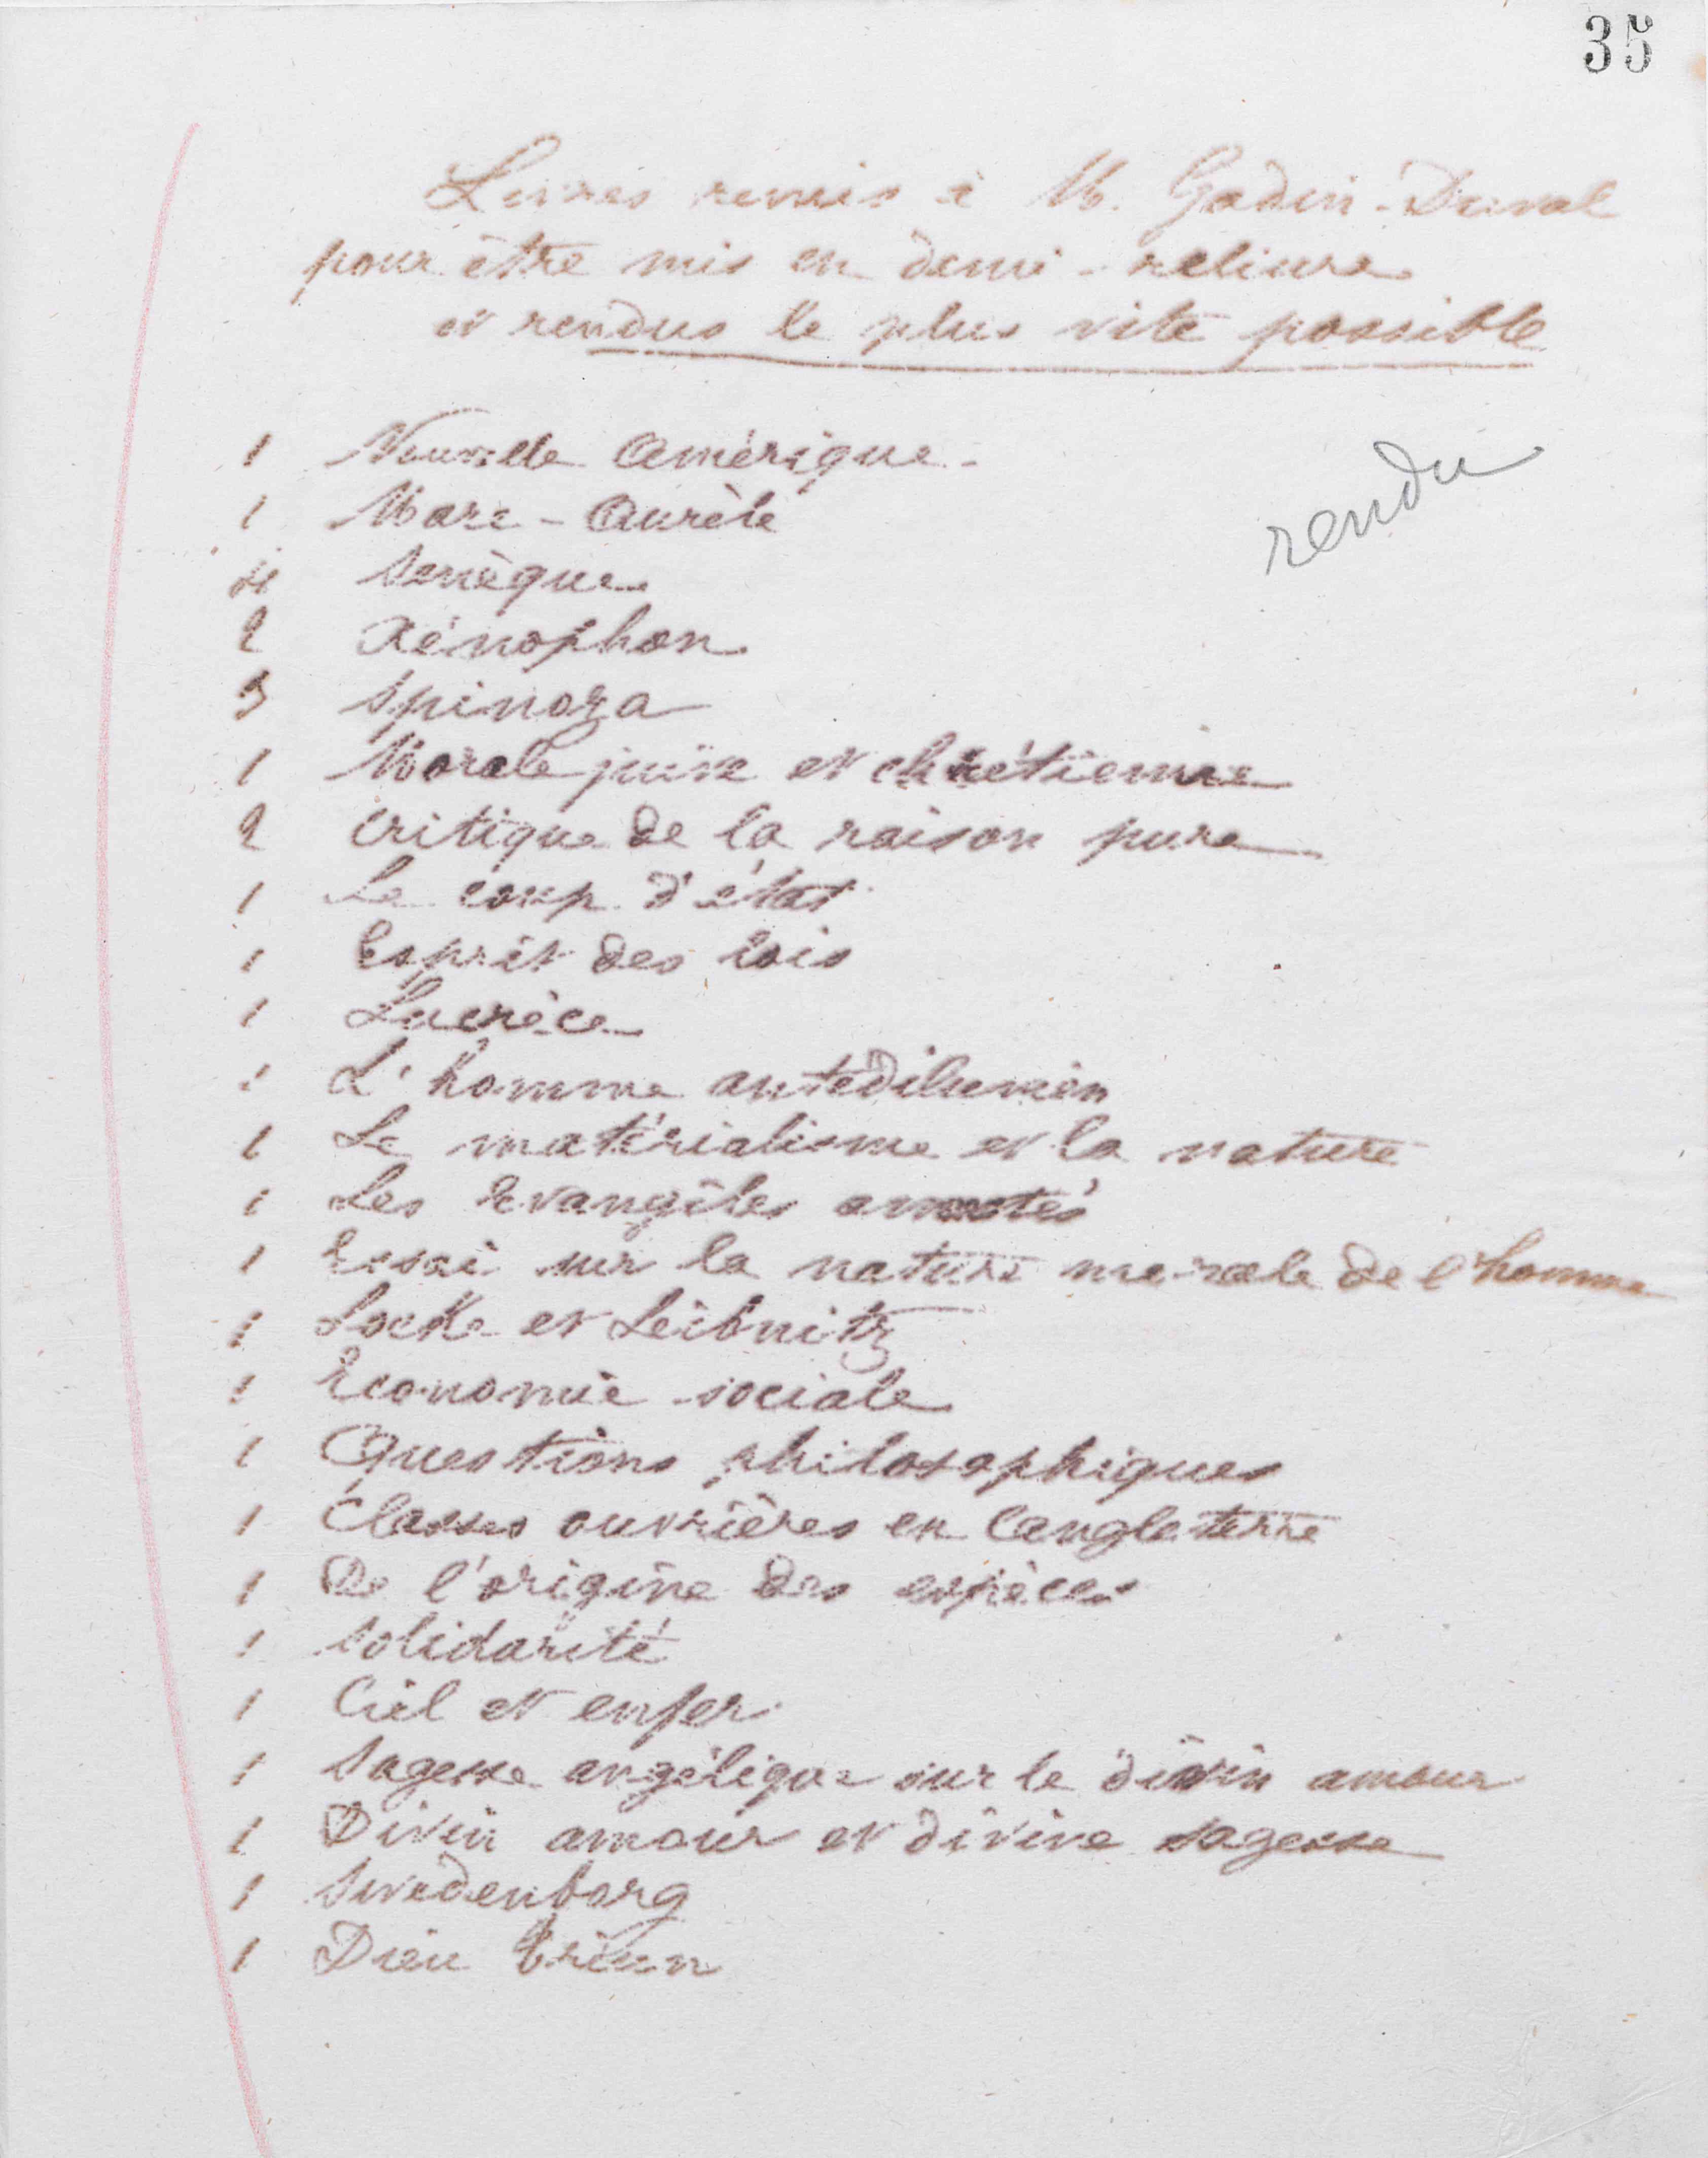 35
Livres remis à M. Godin-Duval
pour être mis en demi-reliure
et rendus le plus vite possible
rendu
1 Nouvelle Amérique
1 Marc-Aurèle
4 Senèque
2 Xénophon
3 Spinoza
1 Morale juive et chrétienne
2 Critique de la raison pure
1 Le coup d'état
1 Esprit des lois
1 Lucrèce
1 L'homme antédiluvien
1 Le matérialisme et la nature
1 Les Evangiles annotés
1 Essai sur la nature morale de l'homme
1 Locke et Leibnitz
1 Economie sociale
1 Questions philosophiques
1 Classes ouvrières en Angleterre
1 De l'origine des espèces
1 Solidarité
1 Ciel et enfer
1 Sagesse angélique sur le divin amour
1 Divin amour et divine sagesse
1 Swedenborg
1 Dieu triun